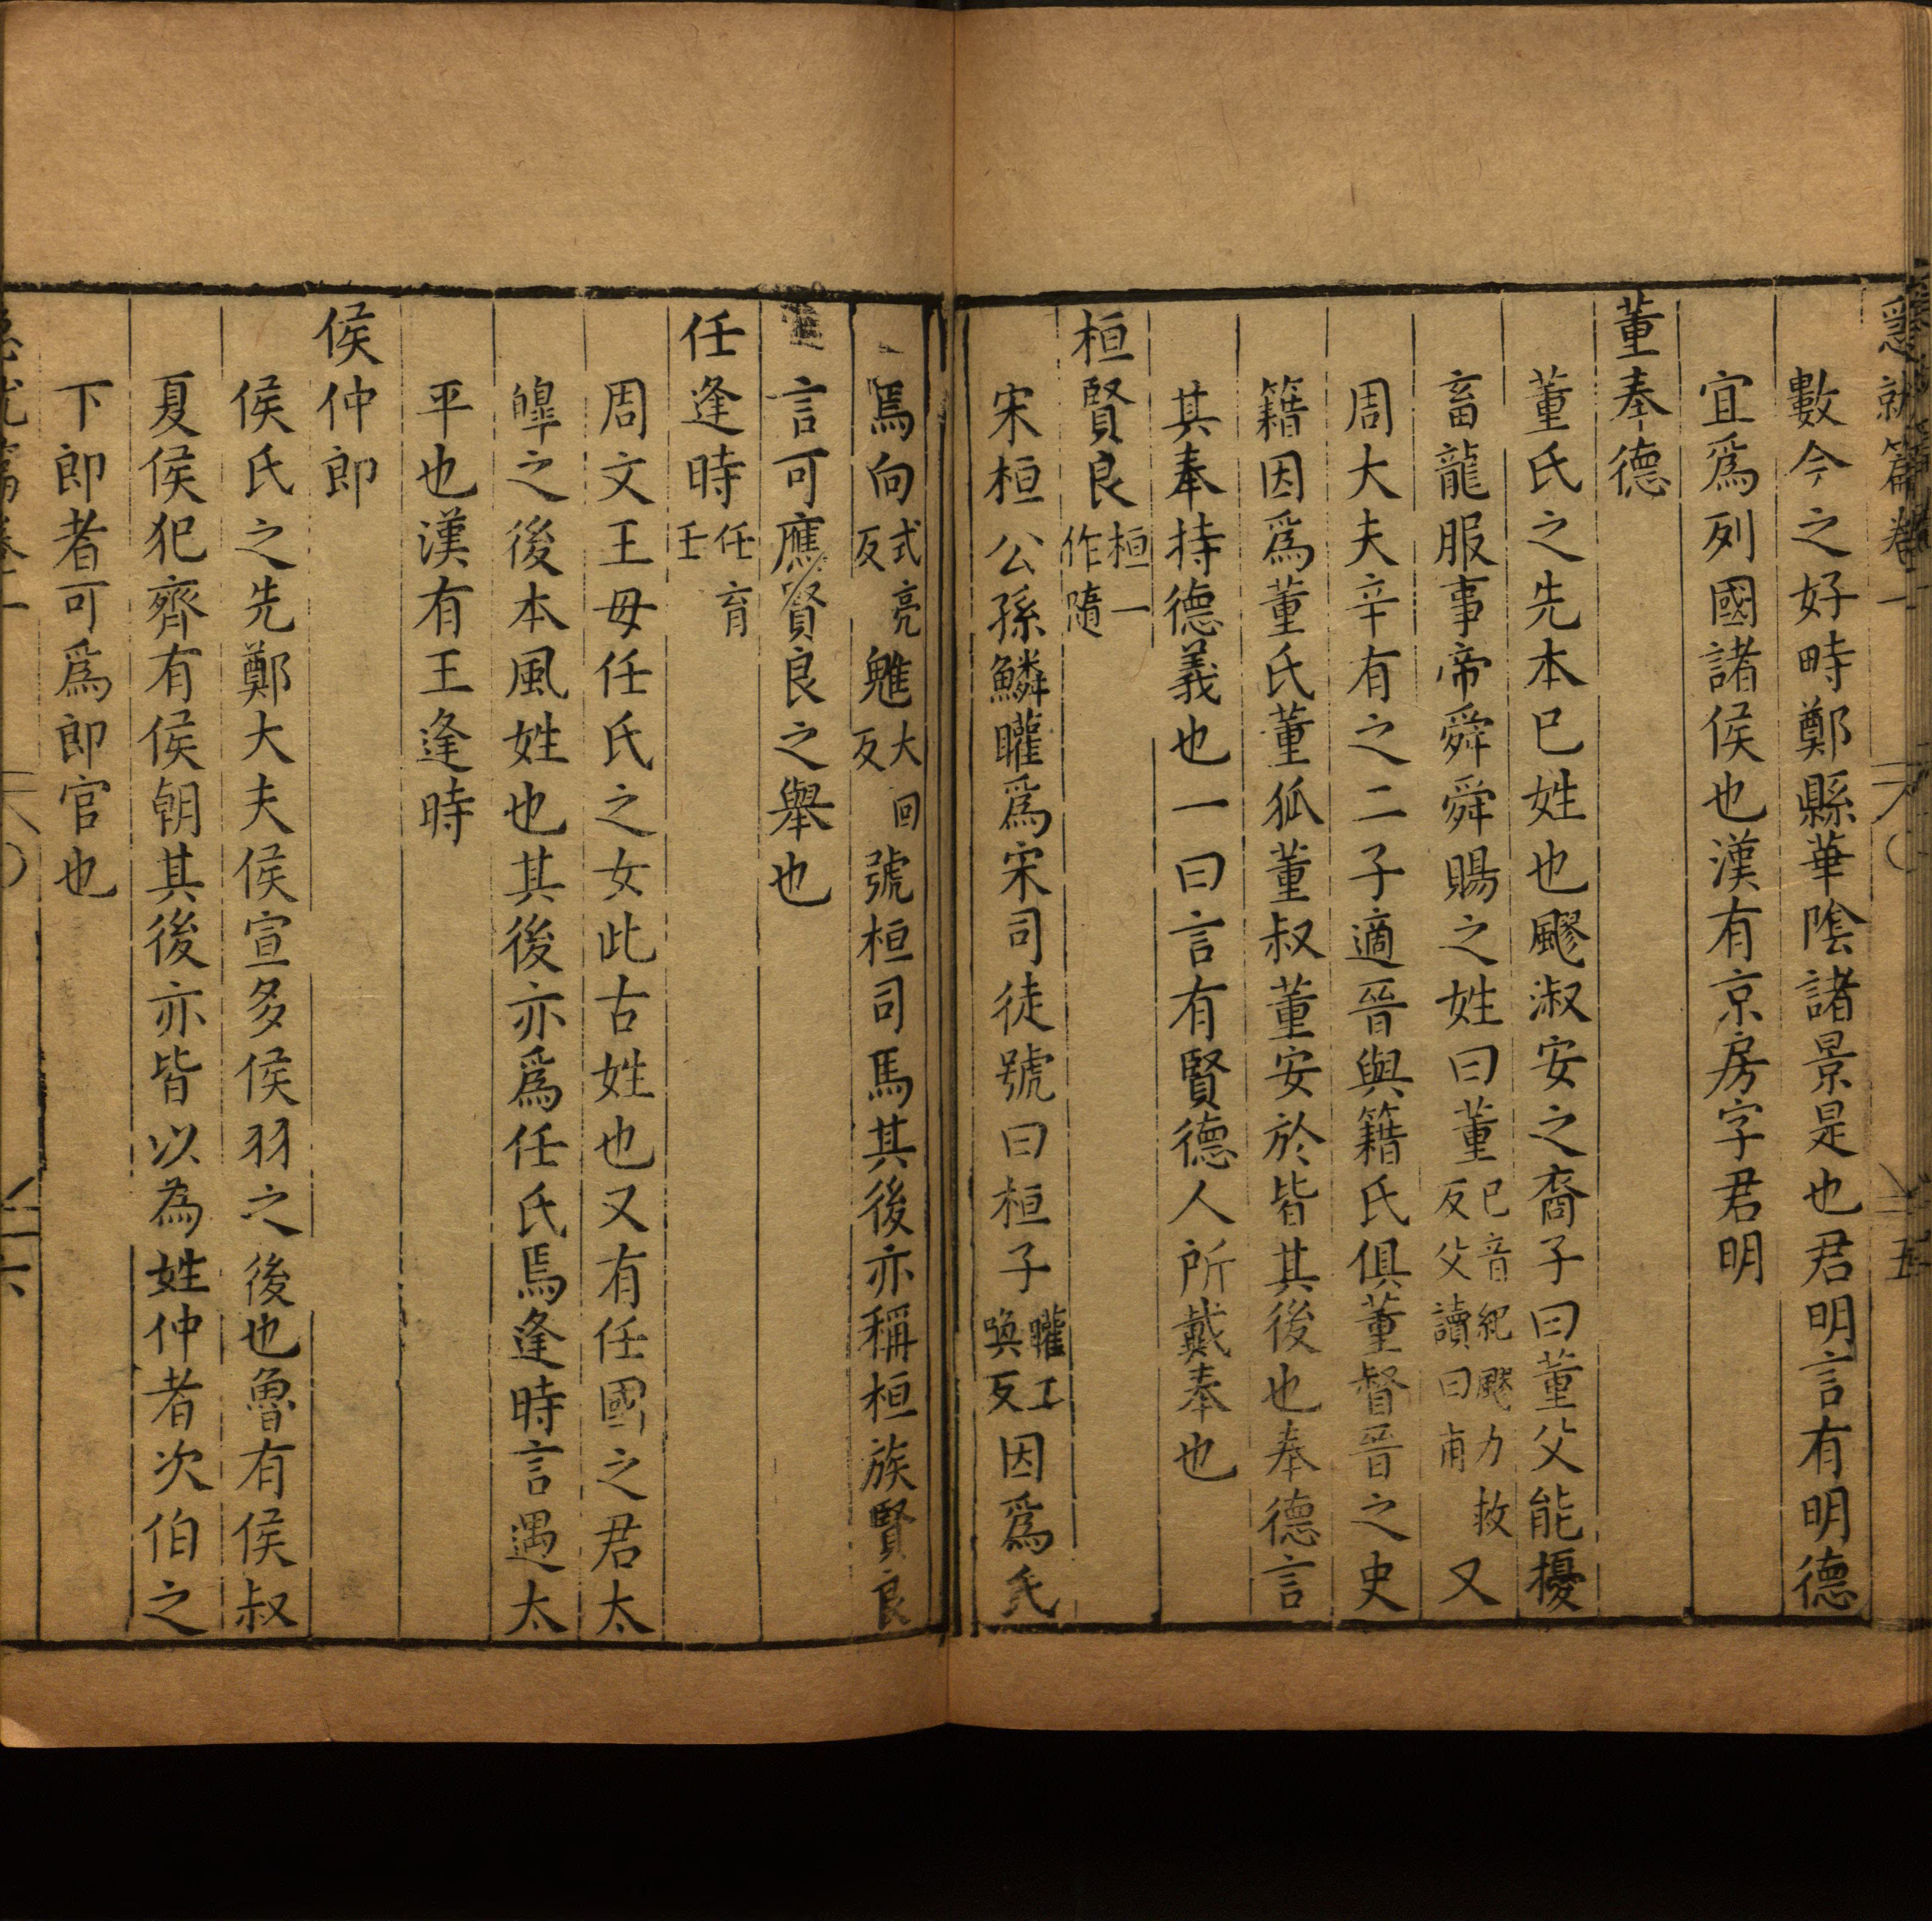 急就篇卷一 五
數今之好畤鄭縣華陰諸景是也君明言有明德
宜爲列國諸侯也漢有京房字君明
董奉德
董氏之先本巳姓也飂淑安之裔子曰董父能擾
畜龍服事帝舜舜賜之姓曰董巳音紀飂力救反父讀曰甫又
周大夫辛有之二子適晉與籍氏俱董督晉之史
籍因爲董氏董狐董叔董安於皆其後也奉德言
其奉持德義也一曰言有賢德人所戴奉也
桓賢良桓一作隨
宋桓公孫鱗矔爲宋司徒號曰桓子矔工喚反因爲氏
焉向式亮反魋大回反號桓司馬其後亦稱桓族賢良
言可應賢良之舉也
任逢時任育壬
周文王毋任氏之女此古姓也又有任國之君太
皥之後本風姓也其後亦爲任氏焉逢時言遇太
平也漢有王逢時
侯仲郎
侯氏之先鄭大夫侯宣多侯羽之後也魯有侯叔
夏侯犯齊有侯朝其後亦皆以為姓仲者次伯之
下郎者可爲郎官也
六